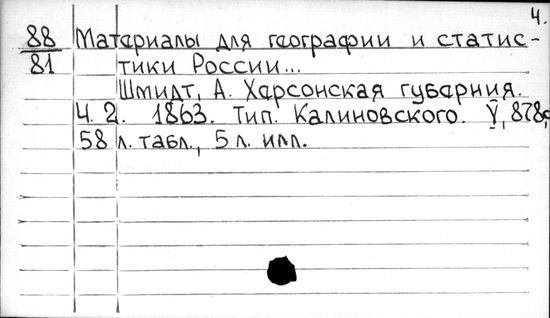 4.
88 Материалы для географии и статис-
81 тики России...
Шмидт, А. Херсонская губерния.
Ч. 2. 1863. Тип. Калиновского. V, 878с,
58 л. табл., 5 л. илл.